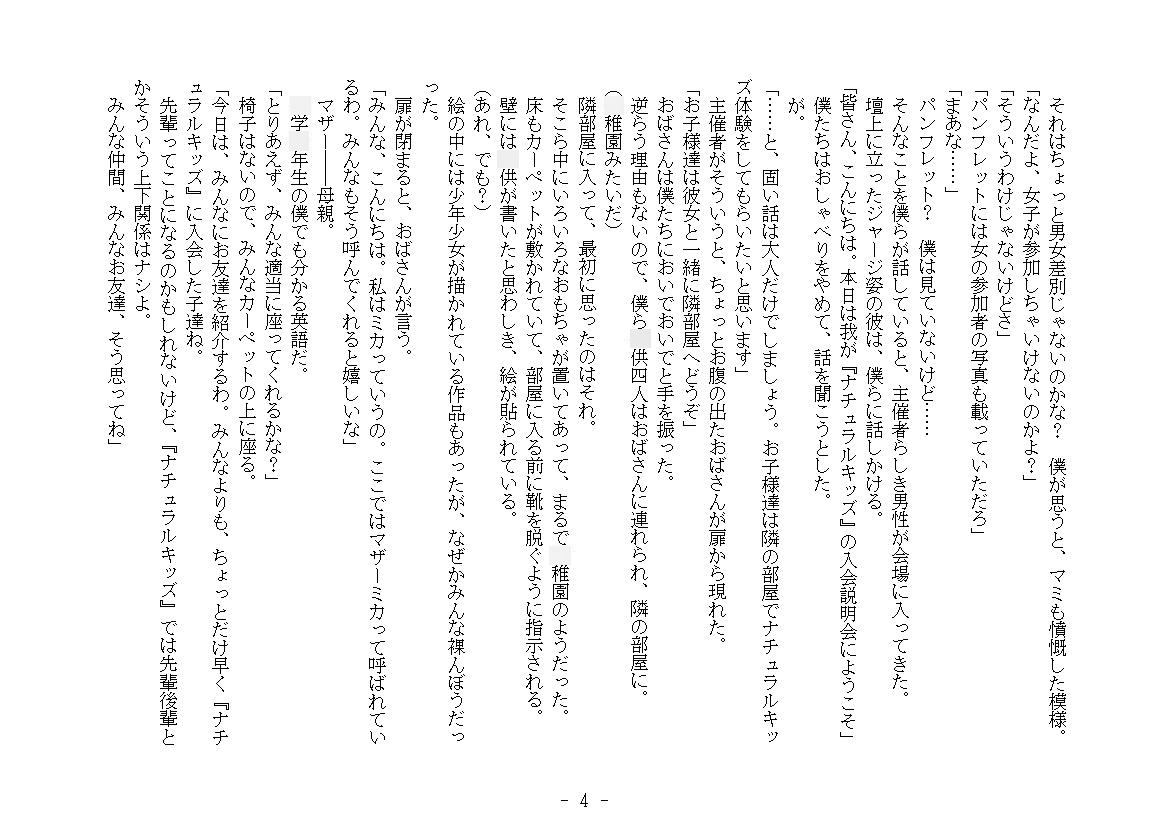 それはちょっと男女差別じゃないのかな？　僕が思うと、マミも憤慨した模様。
「なんだよ、女子が参加しちゃいけないのかよ？」
「そういうわけじゃないけどさ」
「パンフレットには女の参加者の写真も載っていただろ」
「まあな……」
パンフレット？　僕は見ていないけど……
そんなことを僕らが話していると、主催者らしき男性が会場に入ってきた。
壇上に立ったジャージ姿の彼は、僕らに話しかける。
「皆さん、こんにちは。本日は我が『ナチュラルキッズ』の入会説明会にようこそ」
僕たちはおしゃべりをやめて、話を聞こうとした。
が。
「……と、固い話は大人だけでしましょう。お子様達は隣の部屋でナチュラルキッ
ズ体験をしてもらいたいと思います」
主催者がそういうと、ちょっとお腹の出たおばさんが扉から現れた。
「お子様達は彼女と一緒に隣部屋へどうぞ」
おばさんは僕たちにおいでおいでと手を振った。
逆らう理由もないので、僕ら　供四人はおばさんに連れられ、隣の部屋に。
（　稚園みたいだ）
隣部屋に入って、最初に思ったのはそれ。
そこら中にいろいろなおもちゃが置いてあって、まるで　稚園のようだった。
床もカーペットが敷かれていて、部屋に入る前に靴を脱ぐように指示される。
壁には　供が書いたと思わしき、絵が貼られている。
（あれ、でも？）
絵の中には少年少女が描かれている作品もあったが、なぜかみんな裸んぼうだっ
った。
扉が閉まると、おばさんが言う。
「みんな、こんにちは。私はミカっていうの。ここではマザーミカって呼ばれてい
るわ。みんなもそう呼んでくれると嬉しいな」
マザー――母親。
　学　年生の僕でも分かる英語だ。
「とりあえず、みんな適当に座ってくれるかな？」
椅子はないので、みんなカーペットの上に座る。
「今日は、みんなにお友達を紹介するわ。みんなよりも、ちょっとだけ早く『ナチ
ュラルキッズ』に入会した子達ね。
先輩ってことになるのかもしれないけど、『ナチュラルキッズ』では先輩後輩と
かそういう上下関係はナシよ。
みんな仲間、みんなお友達、そう思ってね」
- 4 -